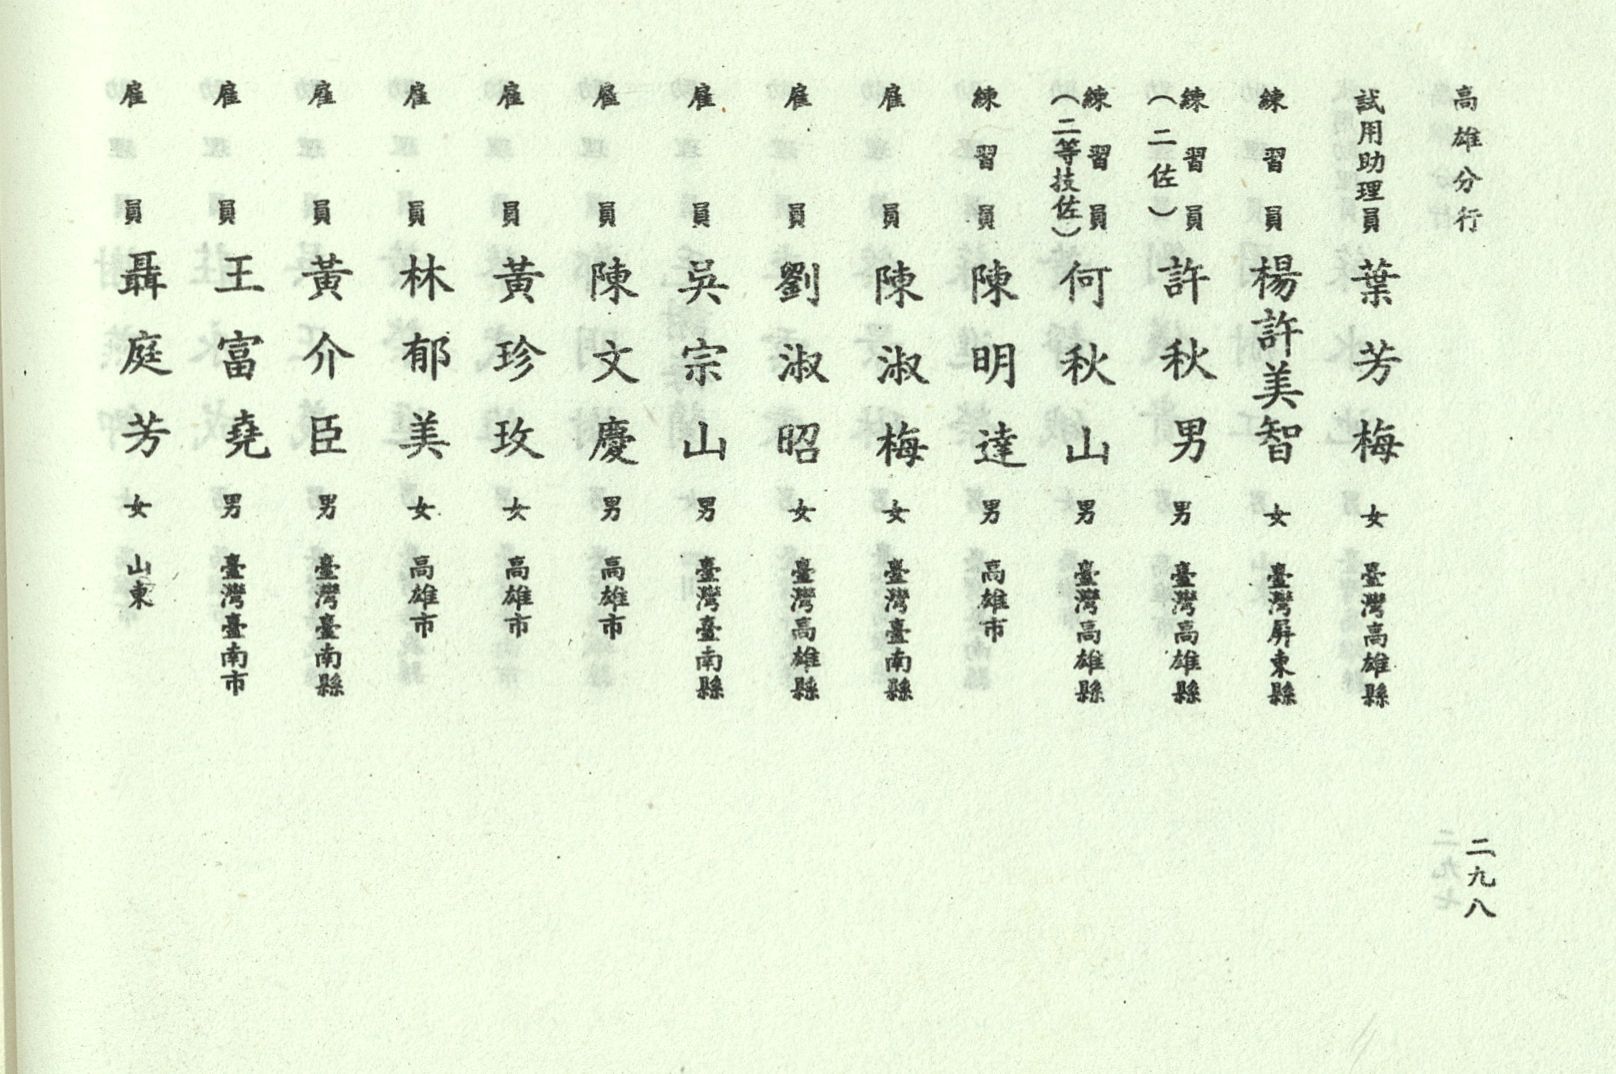 高雄分行
試用助理員 葉芳梅 女 臺灣高雄縣
練習員 楊許美智 女 臺灣屏東縣
練習員(二佐) 許秋男 男 臺灣高雄縣
練習員(二等技佐) 何秋山 男 臺灣高雄縣
練習員 陳明達 男 高雄市
雇員 陳淑梅 女 臺灣臺南縣
雇員 劉淑昭 女 臺灣高雄縣
雇員 吳宗山 男 臺灣臺南縣
雇員 陳文慶 男 高雄市
雇員 黃珍玫 女 高雄市
雇員 林郁美 女 高雄市
雇員 黃介臣 男 臺灣臺南縣
雇員 王富堯 男 臺灣臺南市
雇員 聶庭芳 女 山東
二九八